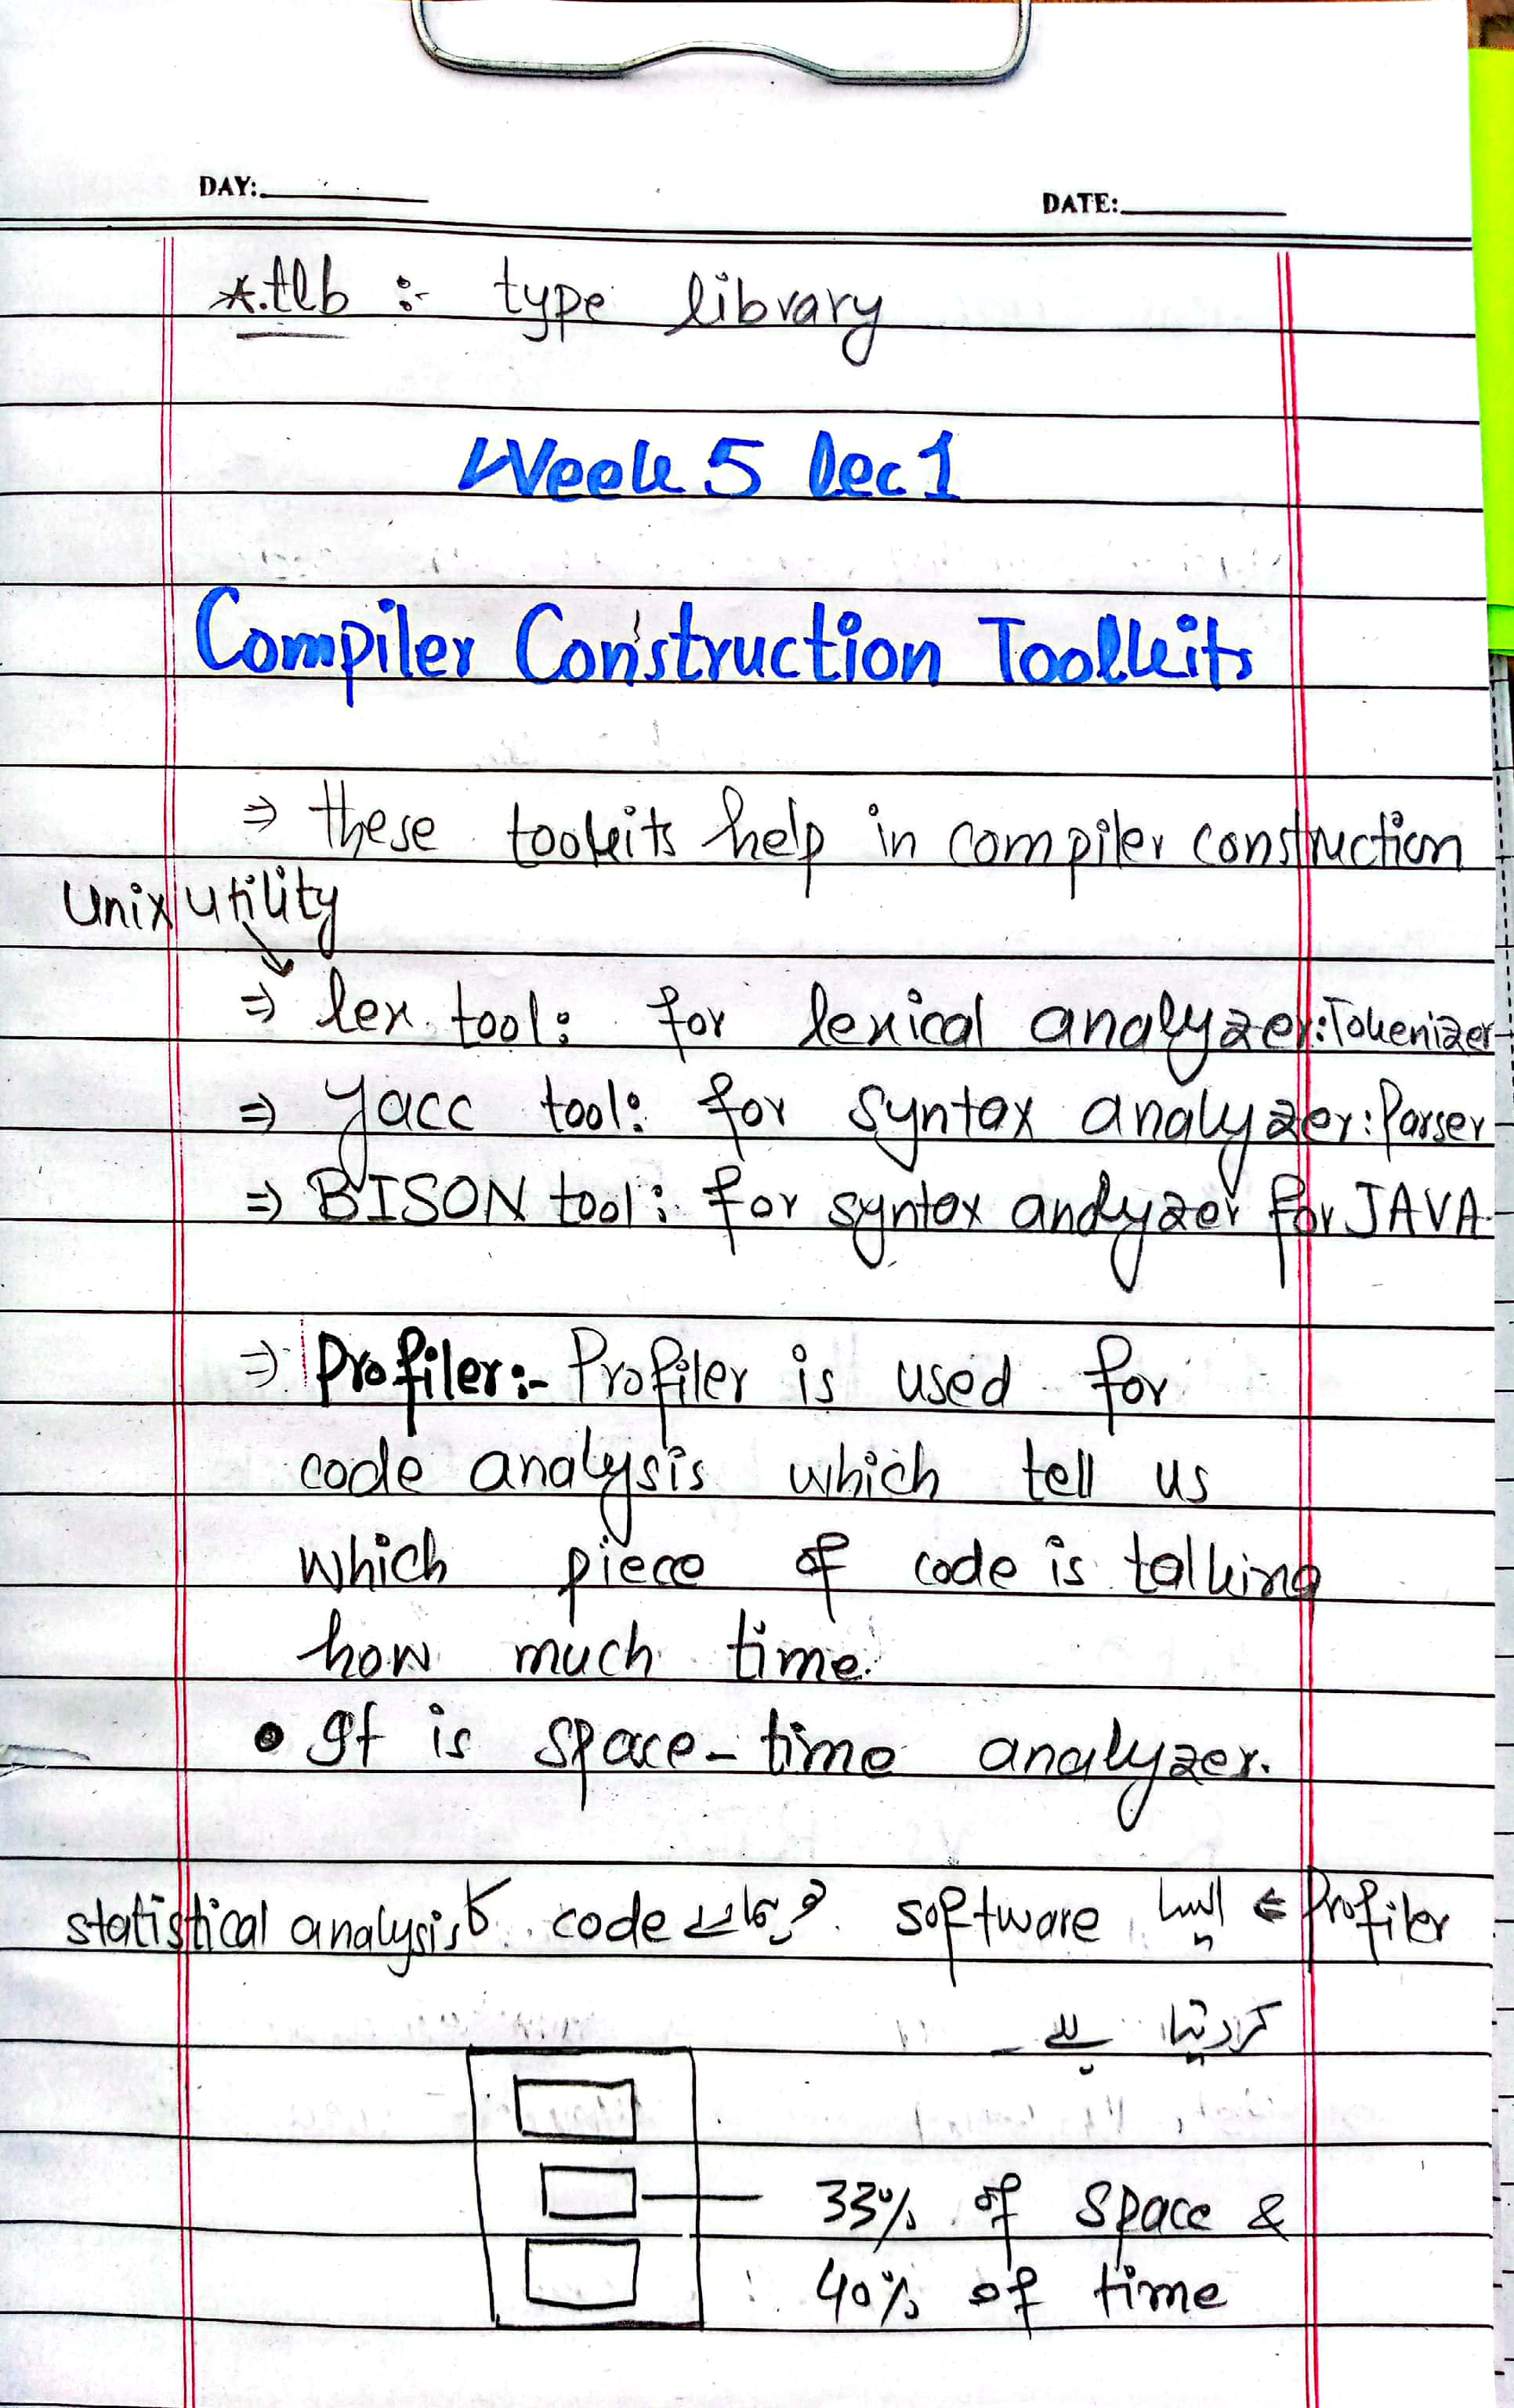 DAY: DATE:
*.tlb :- type library
Week 5 Lec 1
Compiler Construction Toolkits
⇒ these toolkits help in compiler construction
Unix utility
⇒ lex tool: for lexical analyzer: Tokenizer
⇒ Yacc tool: for syntax analyzer: Parser
⇒ BISON tool: for syntax analyzer for JAVA
⇒ Profiler:- Profiler is used for
code analysis which tell us
which piece of code is talking
how much time.
• It is space-time analyzer.
Profiler ⇐ ایسا software جو ہمارے code کا statistical analysis
کر دیتا ہے۔
33% of space &
40% of time